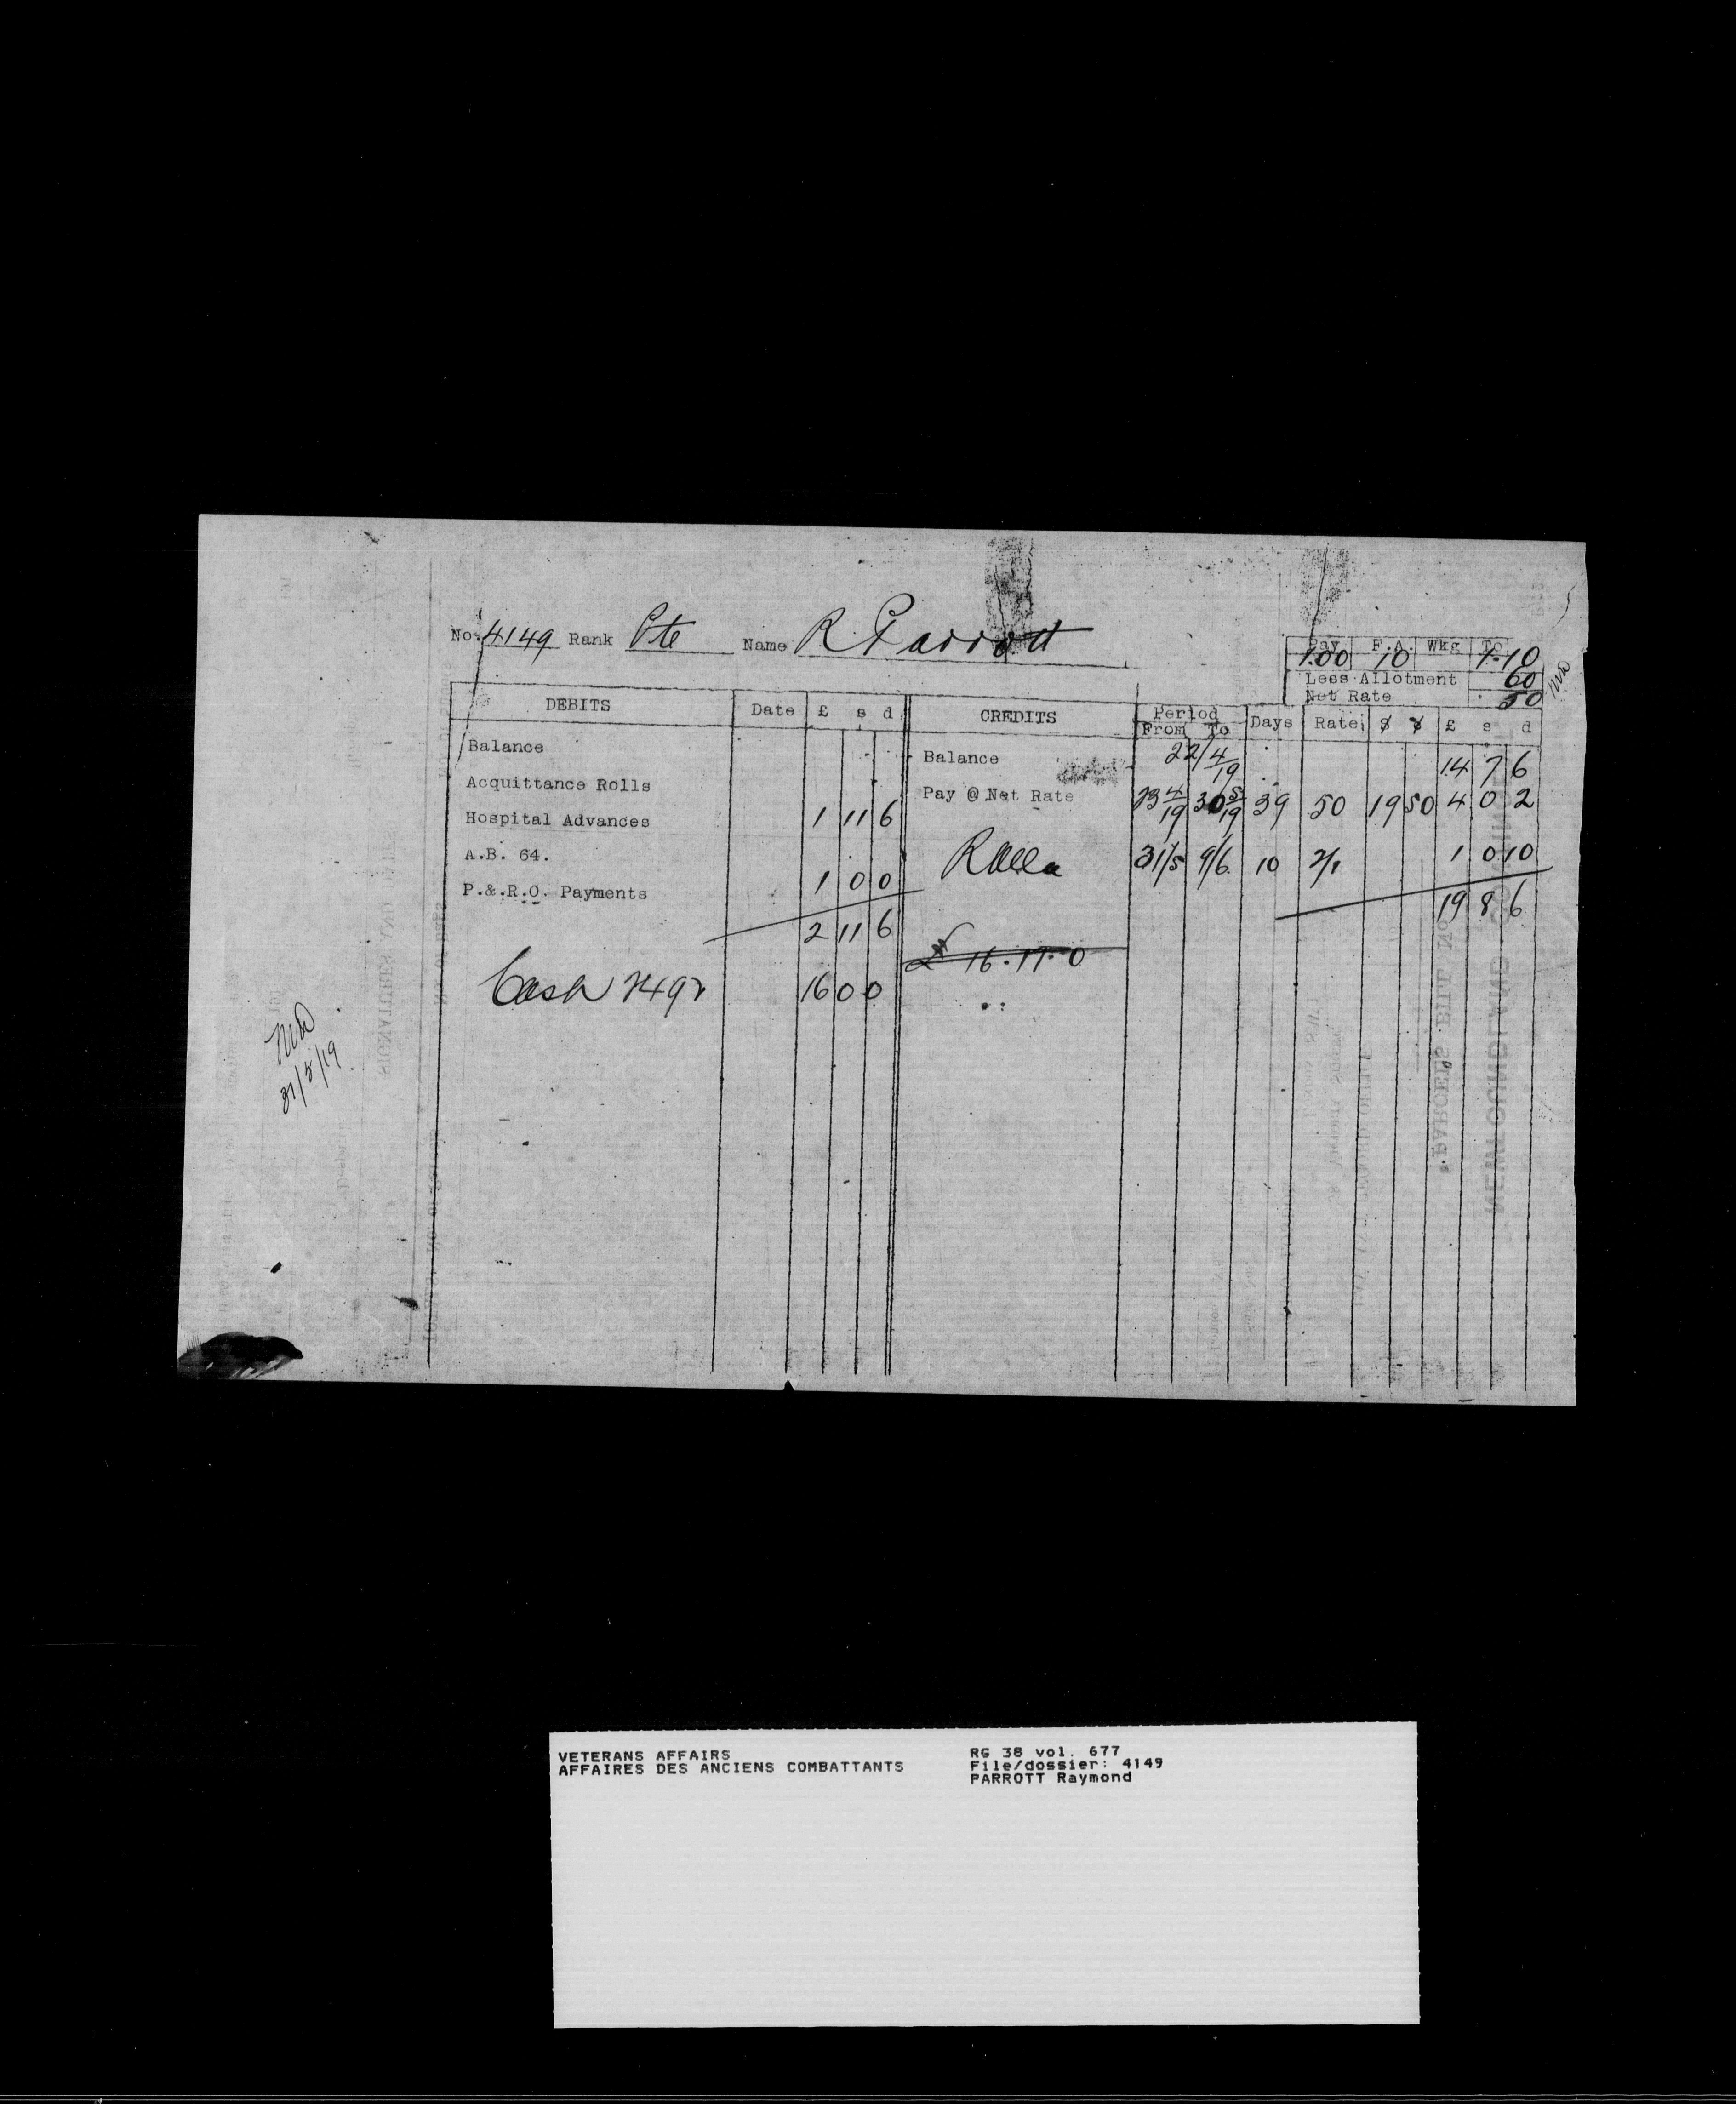 No. 4149 Rank Pte Name R Parrott
Pay F.A. Wkg To
1.00 10 1.10
Less Allotment 60
Net Rate 50
DEBITS Date £ s d CREDITS Period From To Days Rate $ ¢ £ s d
Balance
Balance 22/4/19 14 7 6
Acquittance Rolls
Pay @ Net Rate 23 4/19 30 5/19 39 50 19 50 4 0 2
Hospital Advances 1 11 6
A.B. 64.
31/5 9/6 10 2/1 1 0 10
P.&.R.O. Payments 1 0 0
19 8 6
2 11 6
£ 16.17.0
Cash 2492 16 0 0
31/5/19
SIGNATURES AND DATE
NEWFOUNDLAND
PARCELS BILL No
VETERANS AFFAIRS
AFFAIRES DES ANCIENS COMBATTANTS
RG 38 vol. 677
File/dossier: 4149
PARROTT Raymond